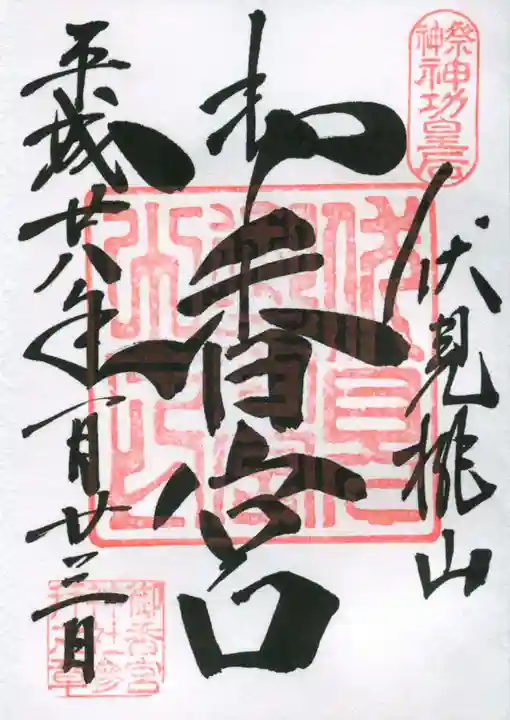 祭神
神功皇后
伏見桃山
御香宮
平成廿八年一月廿三日
御香宮
神社参
拝之章